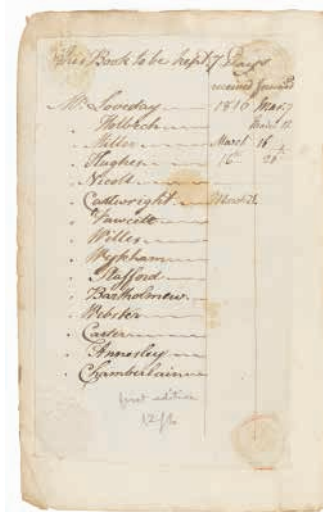 This Book to be kept 7 Days
received forward
Mr. Loveday 1816 Mar. 7
" Holbech March 12
" Miller March 16
" Hughes 16th 26
" Nicoll
" Cartwright March 26
" Fawcett
" Willes
" Wykham
" Stafford
" Bartholmew
" Webster
" Carter
" Annesley
" Chamberlain
first edition
12/6